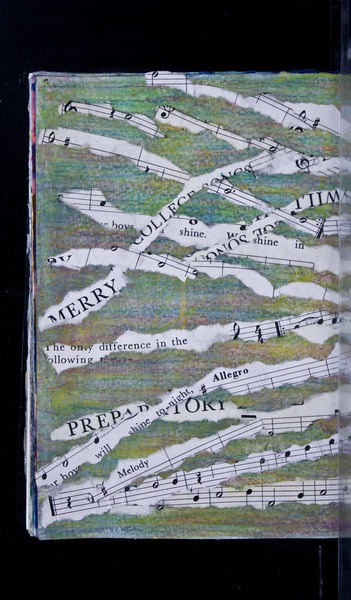 COLLEGE SONGS
WILL
boys
shine.
SONGS
shine in
MERRY
The only difference in the
following
Allegro
PREPARATORY
ur boys will shine to-night,
Melody